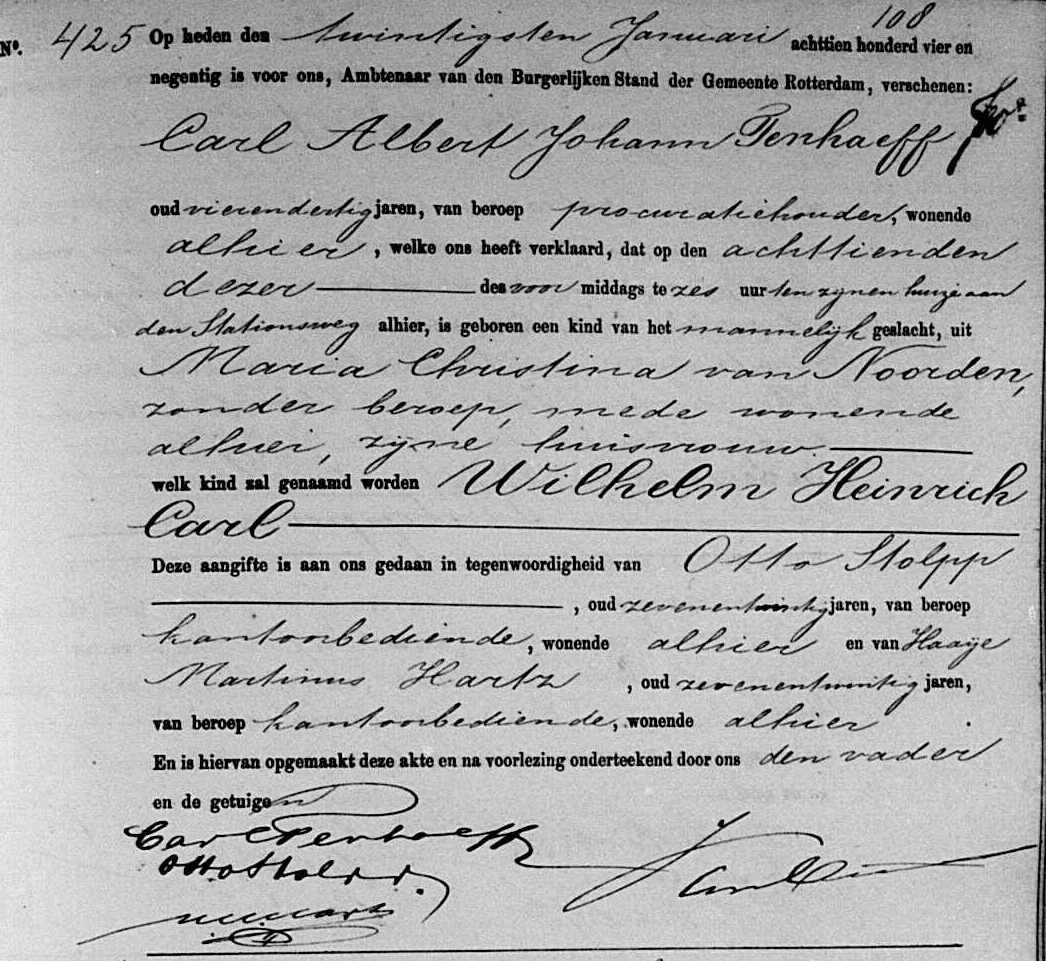 108
Nº. 425 Op heden den twintigsten Januari achttien honderd vier en
negentig is voor ons, Ambtenaar van den Burgerlijken Stand der Gemeente Rotterdam, verschenen:
Carl Albert Johann Tenhaeff
oud vierendertig jaren, van beroep procuratiehouder, wonende
alhier, welke ons heeft verklaard, dat op den achttienden
dezer des voor middags te zes uur ten zijnen huize aan
den Stationsweg alhier, is geboren een kind van het mannelijk geslacht, uit
Maria Christina van Noorden,
zonder beroep, mede wonende
alhier, zijne huisvrouw.
welk kind zal genaamd worden Wilhelm Heinrich
Carl
Deze aangifte is aan ons gedaan in tegenwoordigheid van Otto Stolpp
, oud zevenentwintig jaren, van beroep
kantoorbediende, wonende alhier en van Haaije
Martinus Hartz, oud zevenentwintig jaren,
van beroep kantoorbediende, wonende alhier
En is hiervan opgemaakt deze akte en na voorlezing onderteekend door ons den vader
en de getuigen
Carl Tenhaeff
Otto Stolpp.